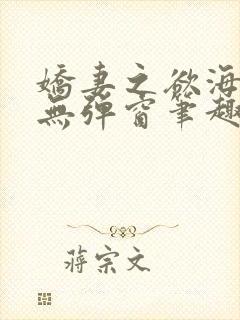 嬌妻之欲海
無彈窗筆趣
蔣宗文